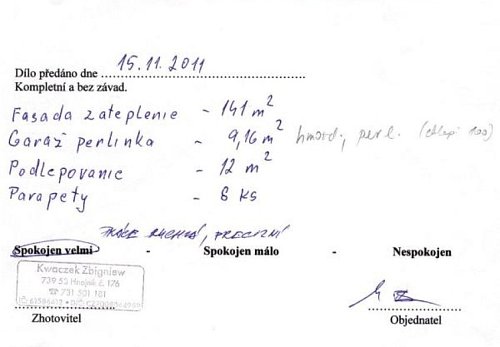 Dílo předáno dne 15.11.2011
Kompletní a bez závad.
Fasada zateplenie - 141 m²
Garaž perlinka - 9,16 m² hmožd, perl.
Podlepovanie - 12 m²
Parapety - 6 ks
PRÁCE RYCHLÁ, PRECIZNÍ
Spokojen velmi - Spokojen málo - Nespokojen
Kwaczek Zbigniew
739 53 Hnojník č. 176
☎ 731 501 181
Zhotovitel Objednatel